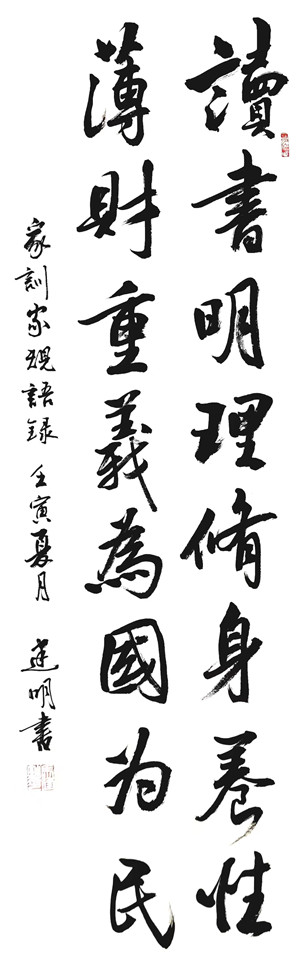 讀書明理脩身養性
薄財重義為國为民
家訓家規語録 壬寅夏月 建明書